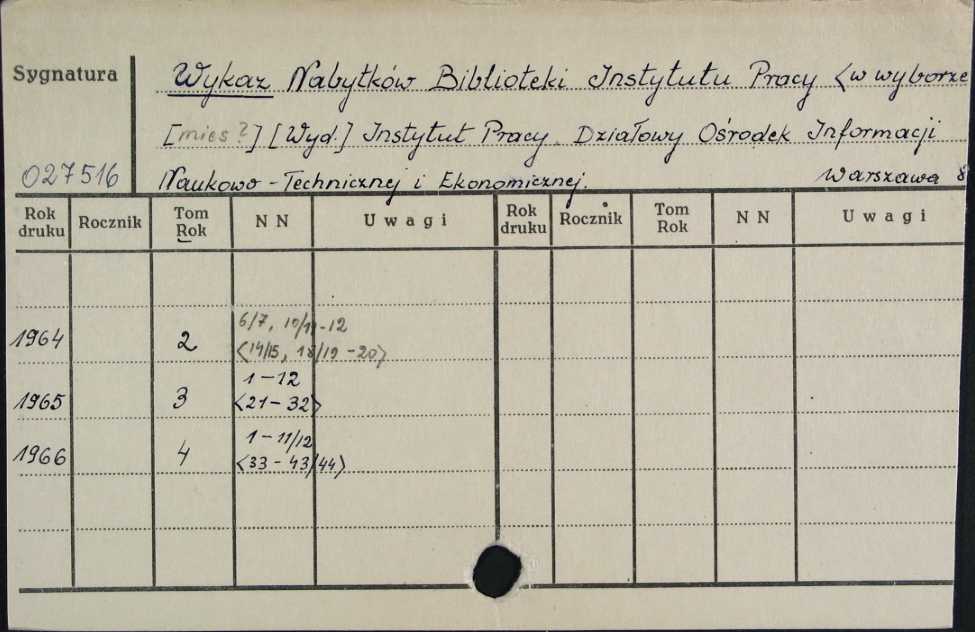 Sygnatura
Wykaz Nabytków Biblioteki Instytutu Pracy <w wyborze
[mies?] [Wyd.] Instytut Pracy. Działowy Ośrodek Informacji
027516 Naukowo-Technicznej i Ekonomicznej. Warszawa 8
Rok druku Rocznik Tom Rok NN Uwagi Rok druku Rocznik Tom Rok NN Uwagi
6/7, 10/11-12
1964 2
<14/15, 18/19-20>
1-12
1965 3
<21-32>
1-11/12
1966 4
<33-43/44>